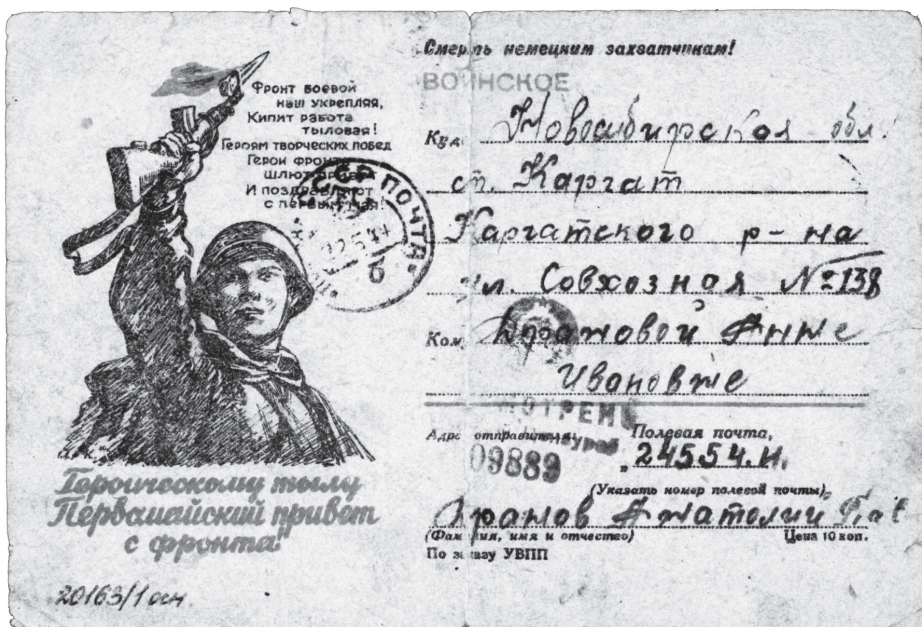 Фронт боевой
наш укрепляя,
Кипит работа
тыловая!
Героям творческих побед
Герои фронта
шлют привет
И поздравляют
с первым мая!
Героическому тылу
Первомайский привет
с фронта!
20163/1 осн
Смерть немецким захватчикам!
ВОИНСКОЕ
Куда Новосибирская обл.
ст. Каргат
Каргатского р-на
ул. Совхозная №138
Кому Анне
Ивановне
СССР ПОЧТА
Адрес отправителя: Полевая почта,
09889
24554.И.
(Указать номер полевой почты)
Анатолий
(Фамилия, имя и отчество) Цена 10 коп.
По заказу УВПП